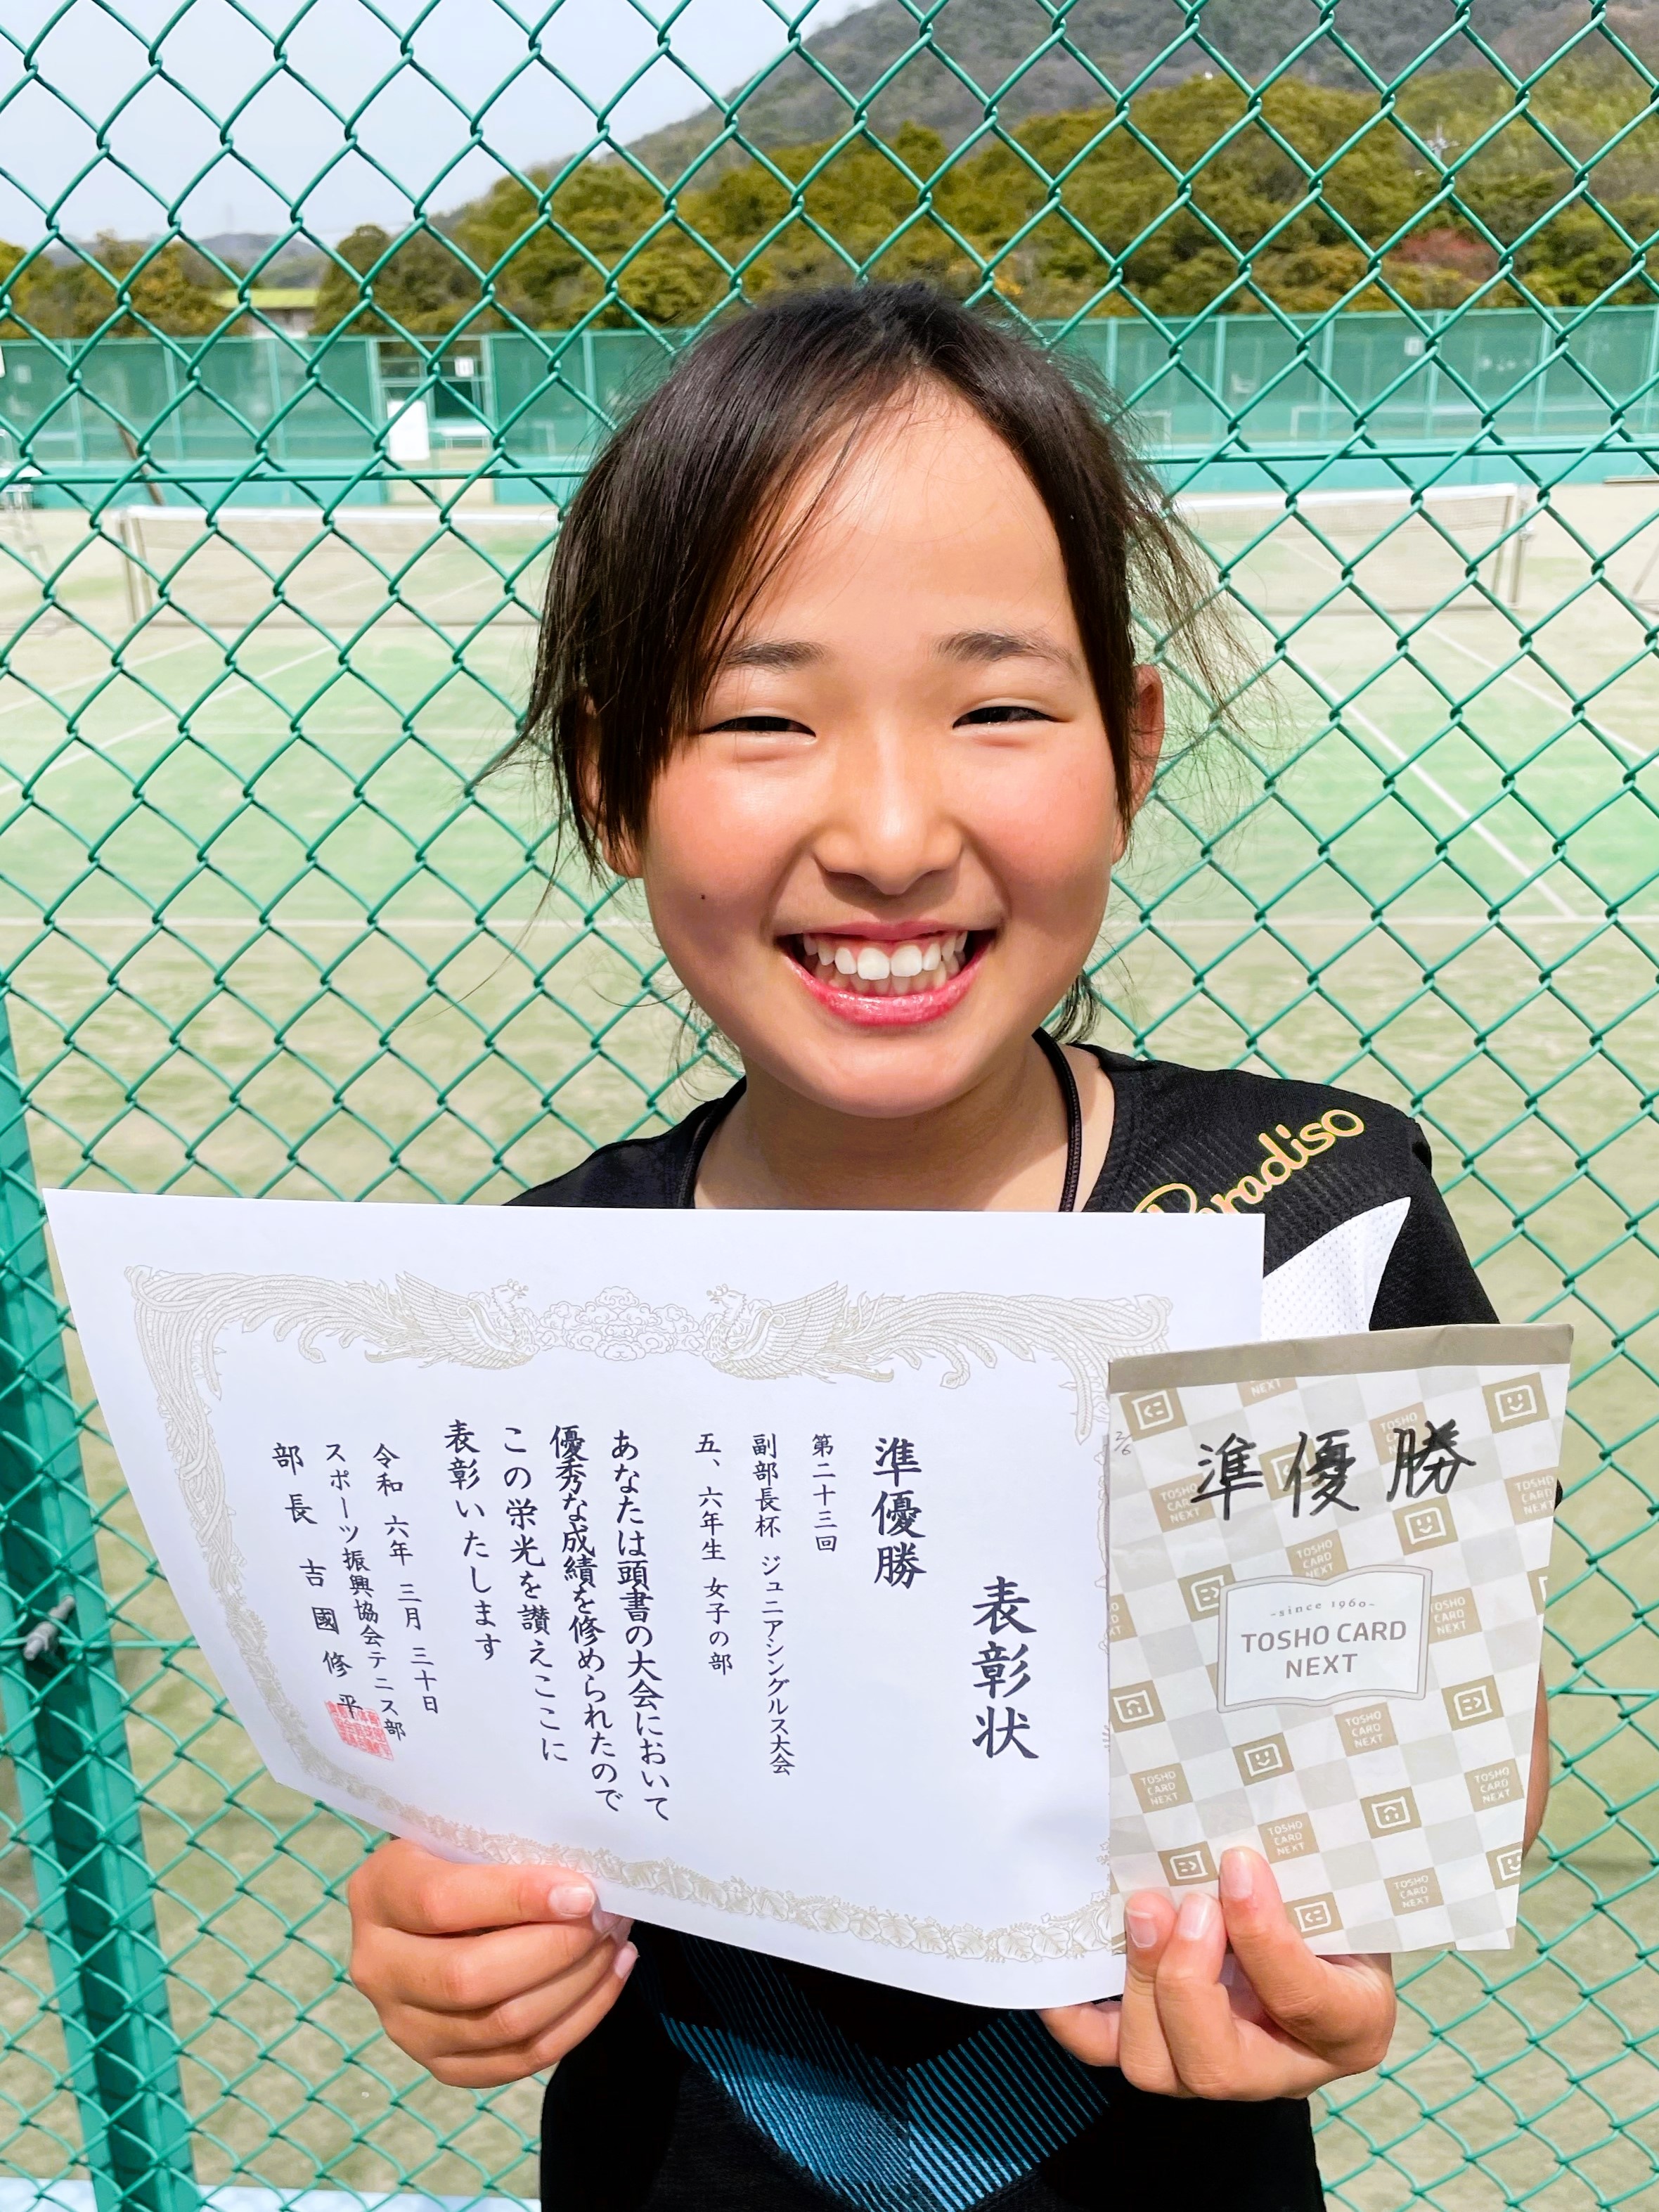 Paradiso
表彰状
準優勝
第二十三回
副部長杯 ジュニアシングルス大会
五、六年生 女子の部
あなたは頭書の大会において
優秀な成績を修められたので
この栄光を讃えここに
表彰いたします
令和 六年 三月 三十日
スポーツ振興協会テニス部
部長 吉國修平
2/6
準優勝
-since 1960-
TOSHO CARD
NEXT
TOSHO
CARD
NEXT